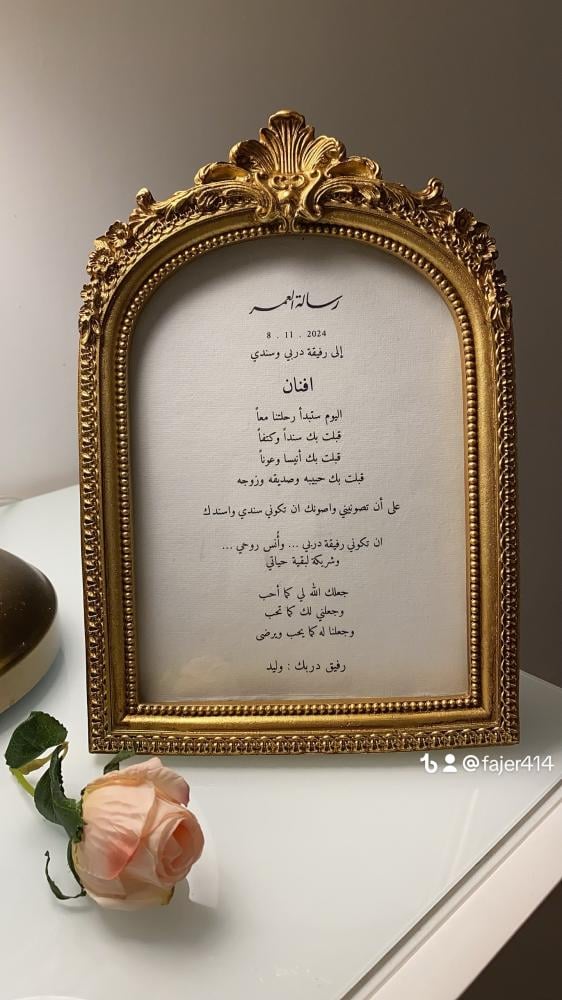 رسالة العمر
8 . 11 . 2024
إلى رفيقة دربي وسندي
افنان
اليوم ستبدأ رحلتنا معاً
قبلت بك سنداً وكتفاً
قبلت بك أنيسا وعوناً
قبلت بك حبيبه وصديقه وزوجه
على أن تصونيني واصونك ان تكوني سندي واسندك
ان تكوني رفيقة دربي ... وأُنس روحي ...
وشريكة لبقية حياتي
جعلك الله لي كما أحب
وجعلني لك كما تحب
وجعلنا له كما يحب ويرضى
رفيق دربك : وليد
@fajer414